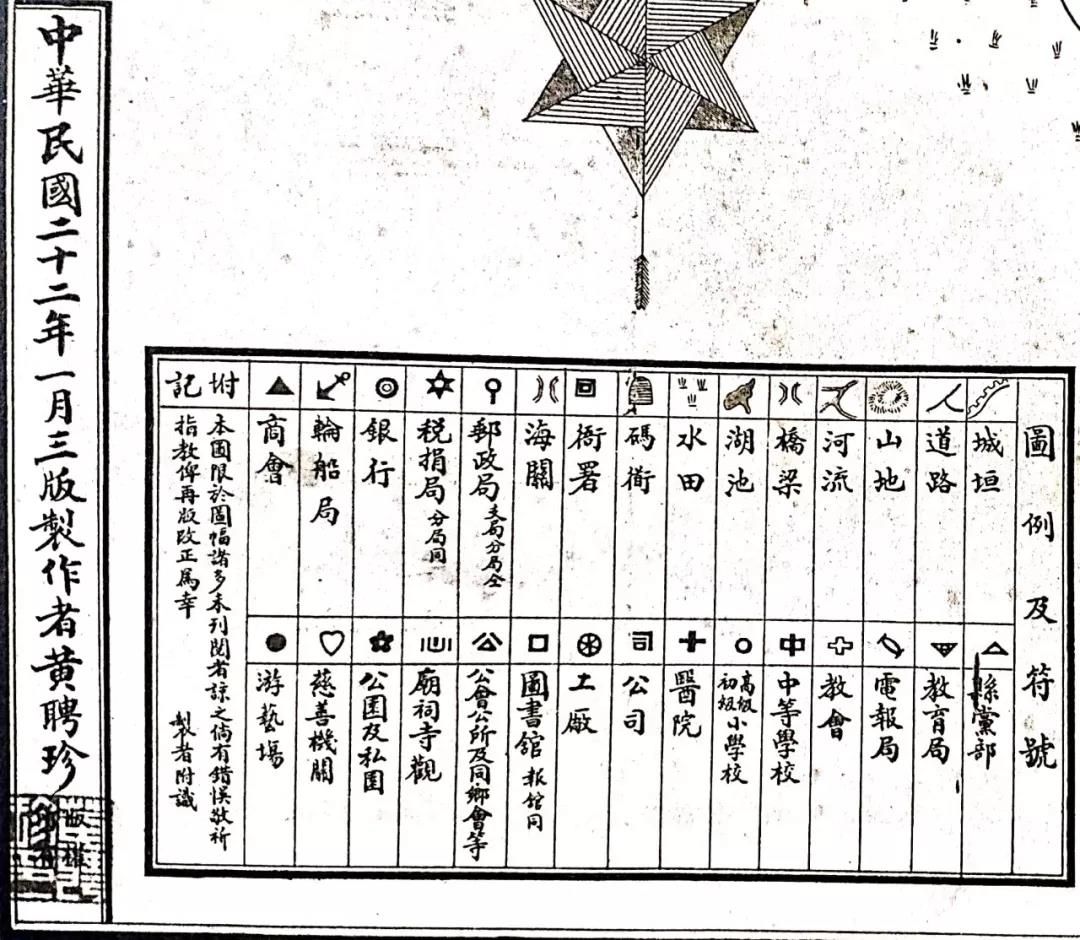 圖例及符號
城垣
道路
山地
河流
橋梁
湖池
水田
碼衛
衙署
海關
郵政局 支局分局仝
税捐局 分局同
銀行
輪船局
商會
縣黨部
教育局
電報局
教會
中等學校
高級初級小學校
醫院
公司
工廠
圖書舘 報舘同
公會公所及同鄉會等
廟祠寺觀
公園及私園
慈善機關
游藝塲
附記
本圖限於圖幅諸多未刊閱者諒之倘有錯悞敬祈
指教俾再版改正爲幸 製者附識
中華民國二十二年一月三版製作者黃聘珍
版權